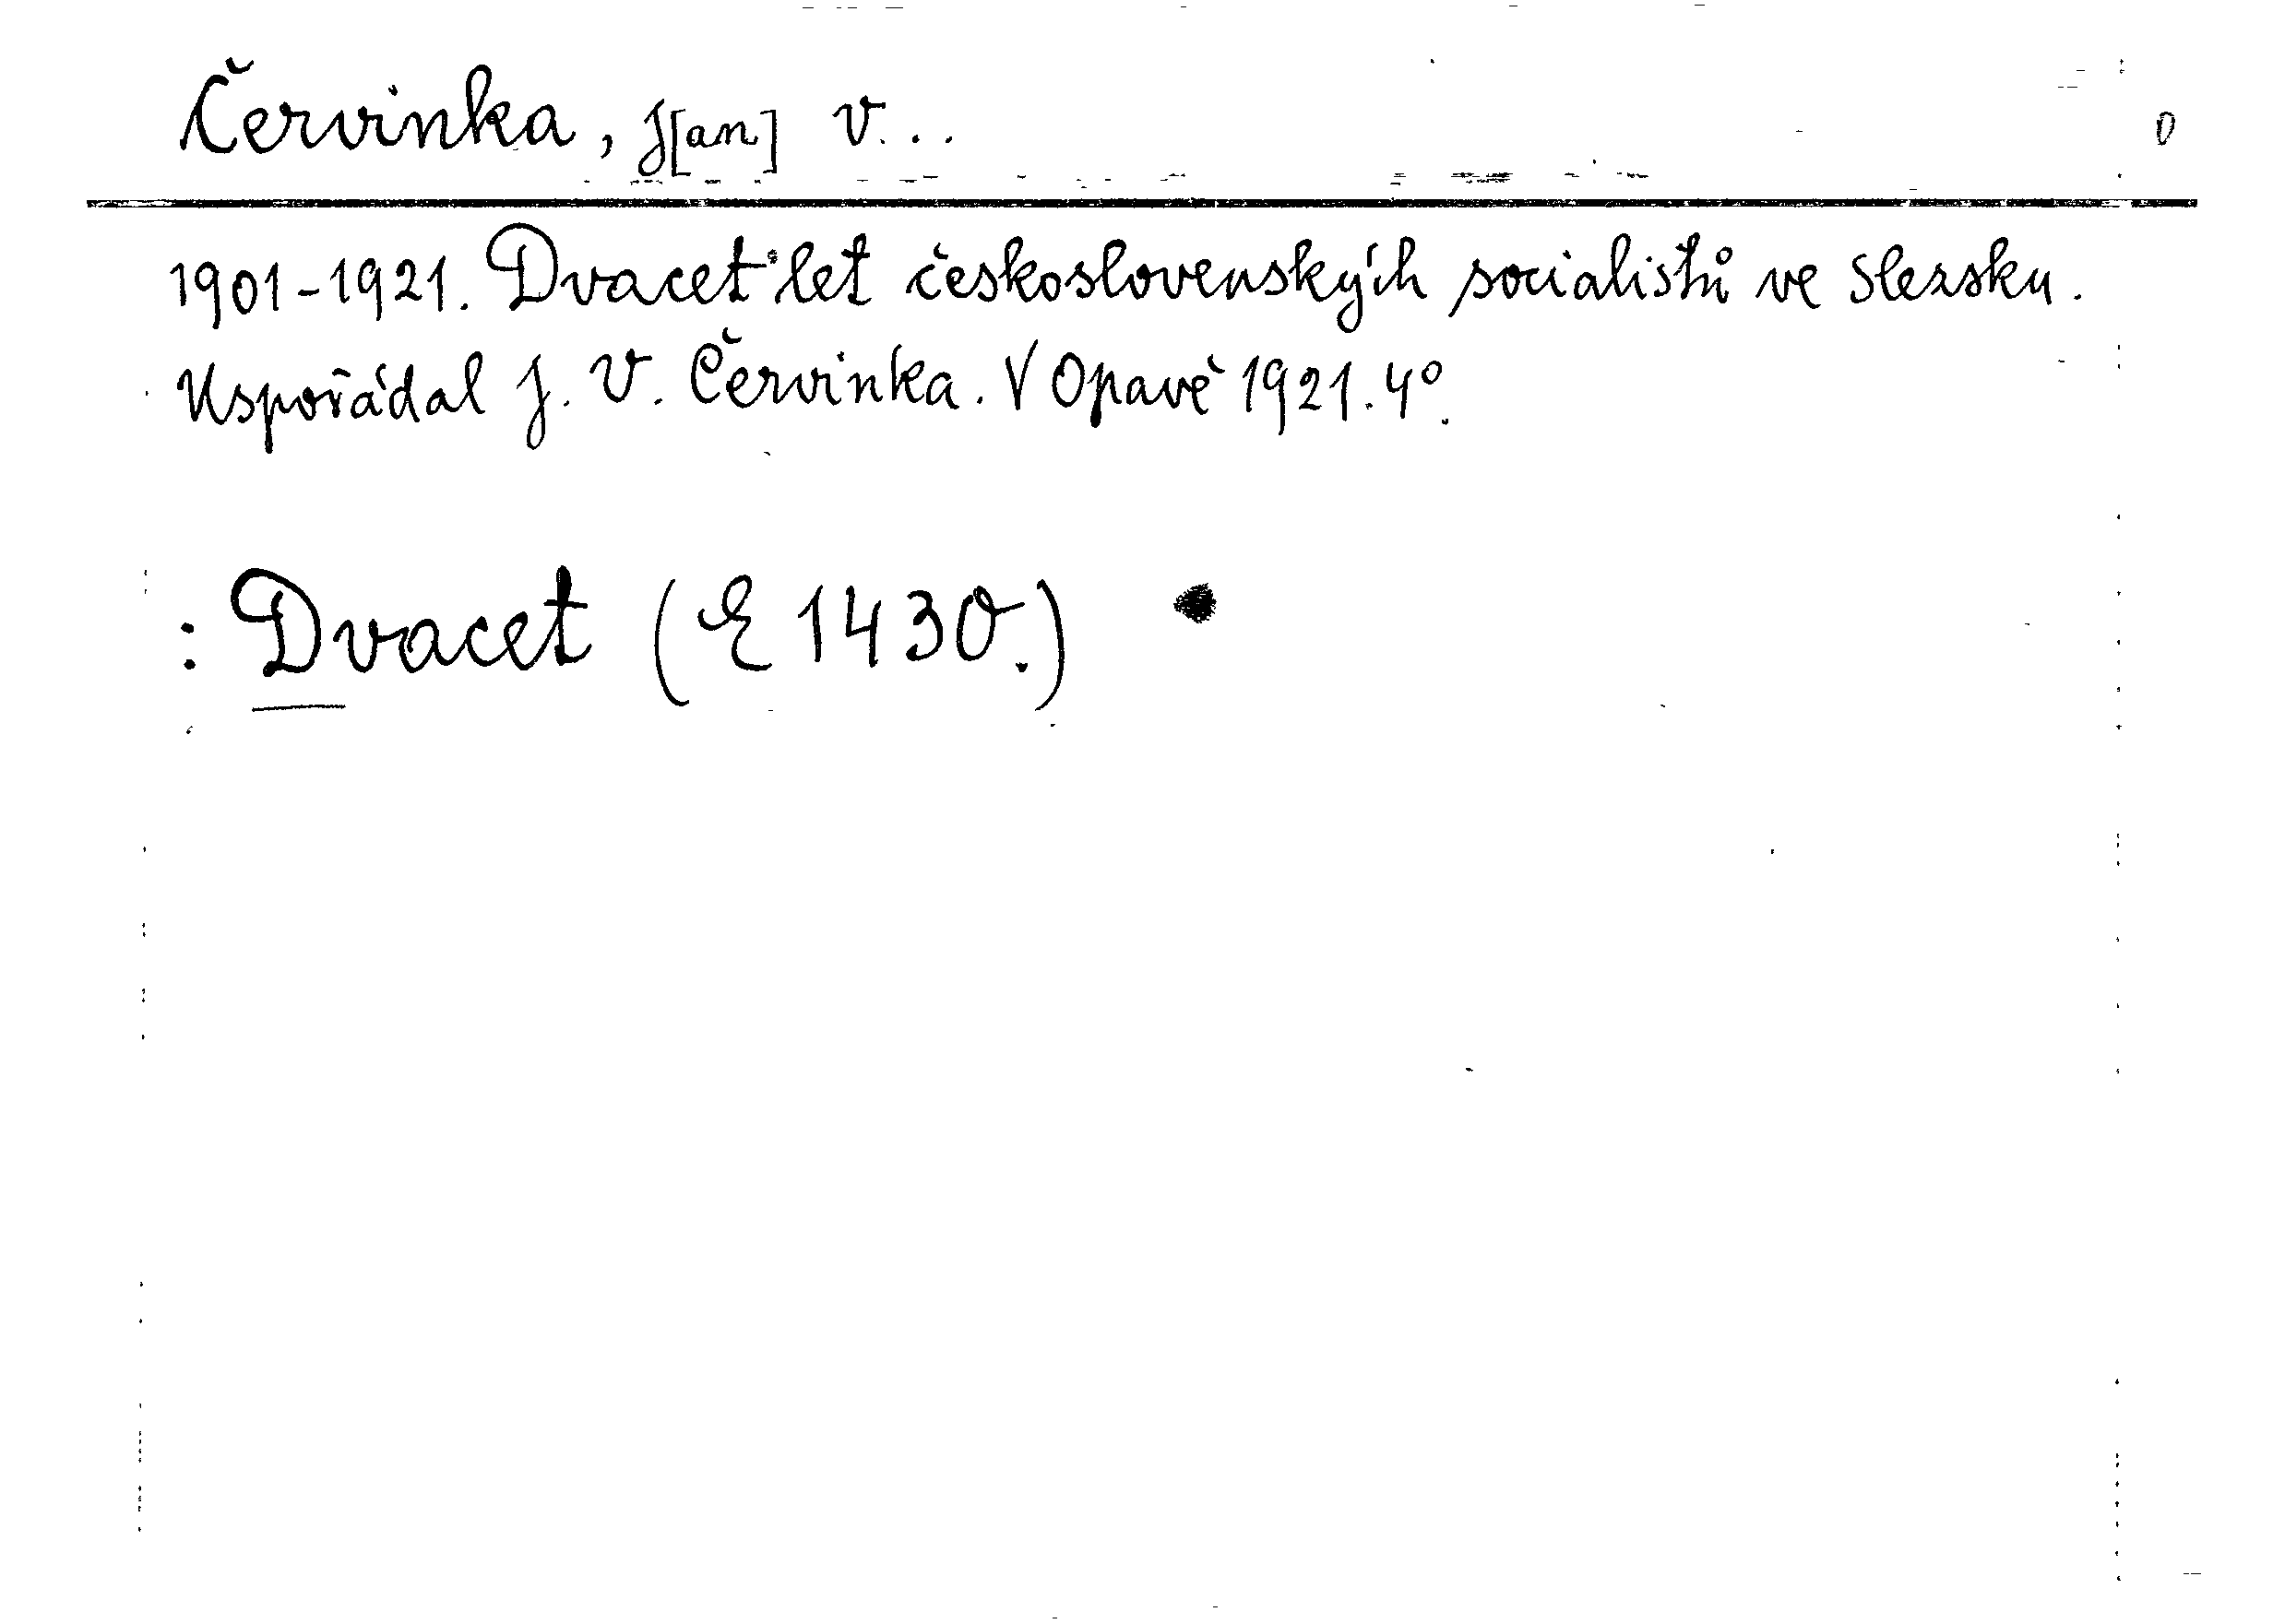 Červinka, J[an] V...
0
1901-1921. Dvacet let československých socialistů ve Slezsku.
Uspořádal J. V. Červinka. V Opavě 1921. 4°.
: Dvacet (E 1430.)